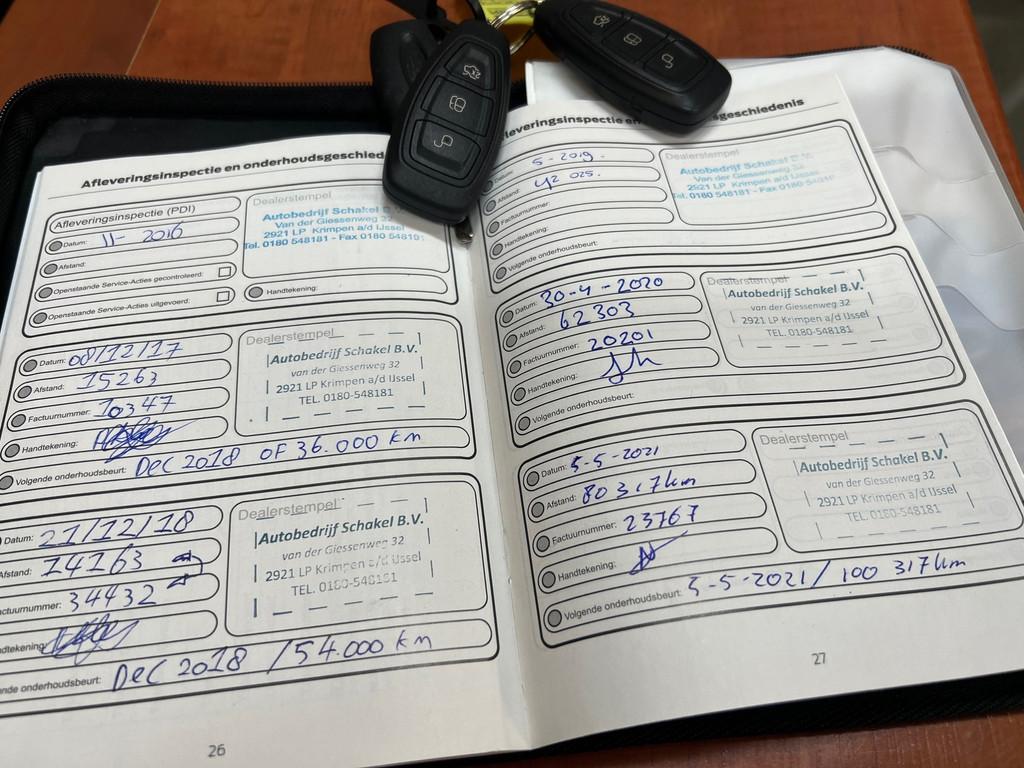 Afleveringsinspectie en onderhoudsgeschied
Afleveringsinspectie (PDI)
Datum: 11- 2016
Afstand:
Openstaande Service-Acties gecontroleerd:
Openstaande Service-Acties uitgevoerd:
Dealerstempel
Autobedrijf Schakel B.V.
Van der Giessenweg 32
2921 LP Krimpen a/d IJssel
Tel. 0180 548181 - Fax 0180 548191
Handtekening:
Datum: 08/12/17
Afstand: 15263
Factuurnummer: 10347
Handtekening:
Volgende onderhoudsbeurt: Dec 2018 OF 36.000 km
Dealerstempel
Autobedrijf Schakel B.V.
van der Giessenweg 32
2921 LP Krimpen a/d IJssel
TEL. 0180-548181
Datum: 21/12/18
Afstand: 14163
ctuurnummer: 34432
dtekening
nde onderhoudsbeurt: Dec 2018 / 54.000 km
Dealerstempel
Autobedrijf Schakel B.V.
van der Giessenweg 32
2921 LP Krimpen a/d IJssel
TEL. 0180-548181
26
leveringsinspectie en sgeschiedenis
Datum: 5-2019.
Afstand: 42 025.
Factuurnummer:
Handtekening:
Volgende onderhoudsbeurt:
Dealerstempel
Autobedrijf Schakel B.V.
Van der Giessenweg 32
2921 LP Krimpen a/d IJssel
Tel. 0180 548181 - Fax 0180 548191
Datum: 30-4-2020
Afstand: 62303
Factuurnummer: 20201
Handtekening:
Volgende onderhoudsbeurt:
Dealerstempel
Autobedrijf Schakel B.V.
van der Giessenweg 32
2921 LP Krimpen a/d IJssel
TEL. 0180-548181
Datum: 5-5-2021
Afstand: 80317km
Factuurnummer: 23767
Handtekening:
Volgende onderhoudsbeurt: 5-5-2021/ 100 317km
Dealerstempel
Autobedrijf Schakel B.V.
van der Giessenweg 32
2921 LP Krimpen a/d IJssel
TEL. 0180-548181
27